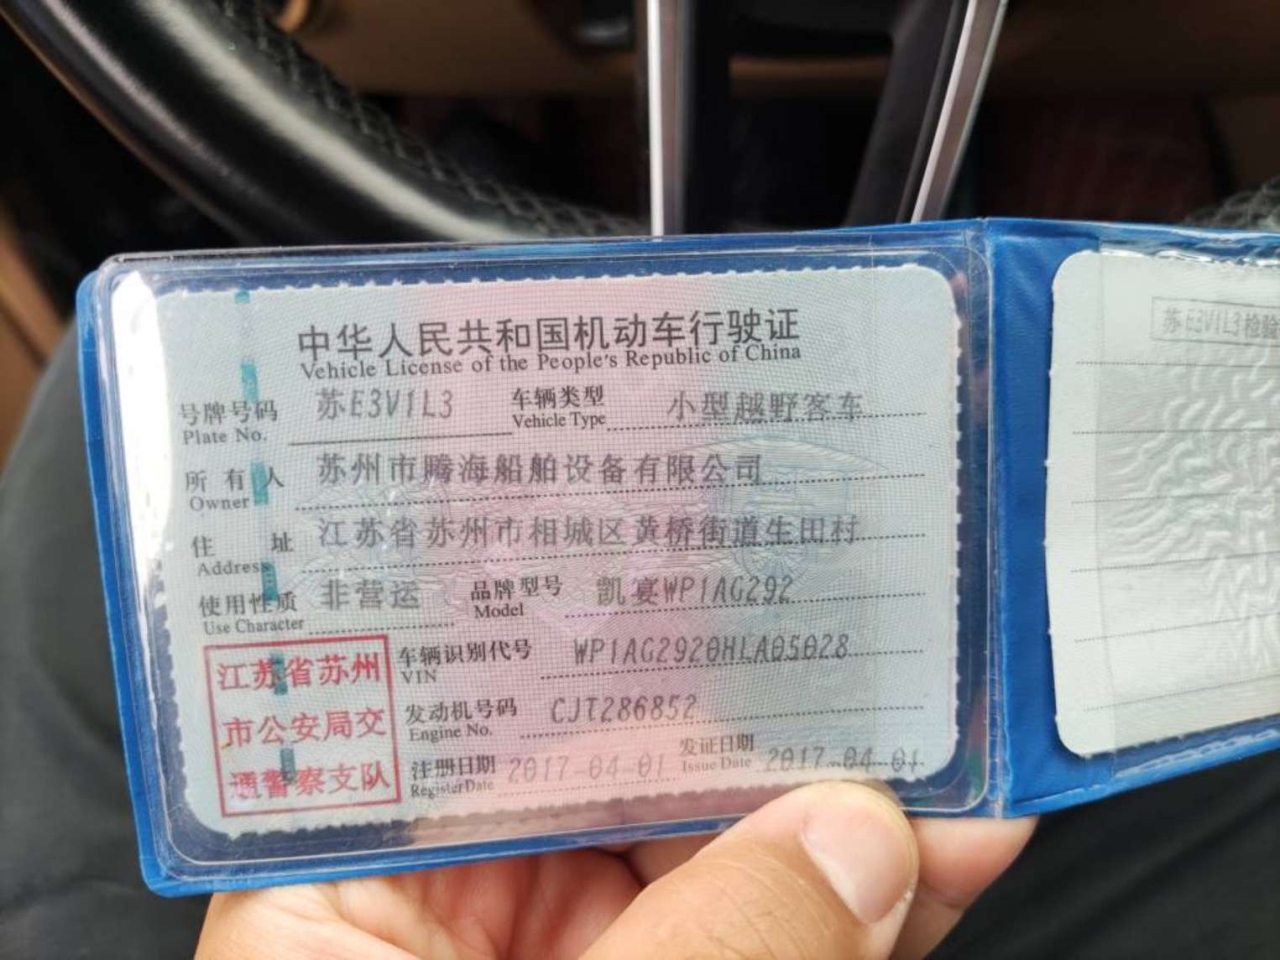 中华人民共和国机动车行驶证
Vehicle License of the People's Republic of China
号牌号码 苏E3V1L3 车辆类型 小型越野客车
Plate No. Vehicle Type
所有人 苏州市腾海船舶设备有限公司
Owner
住址 江苏省苏州市相城区黄桥街道生田村
Address
使用性质 非营运 品牌型号 凯宴WP1AG292
Use Character Model
车辆识别代号 WP1AG2920HLA05028
VIN
发动机号码 CJT286852
Engine No.
注册日期 2017-04-01 发证日期 2017-04-01
Register Date Issue Date
江苏省苏州
市公安局交
通警察支队
苏E3V1L3检验